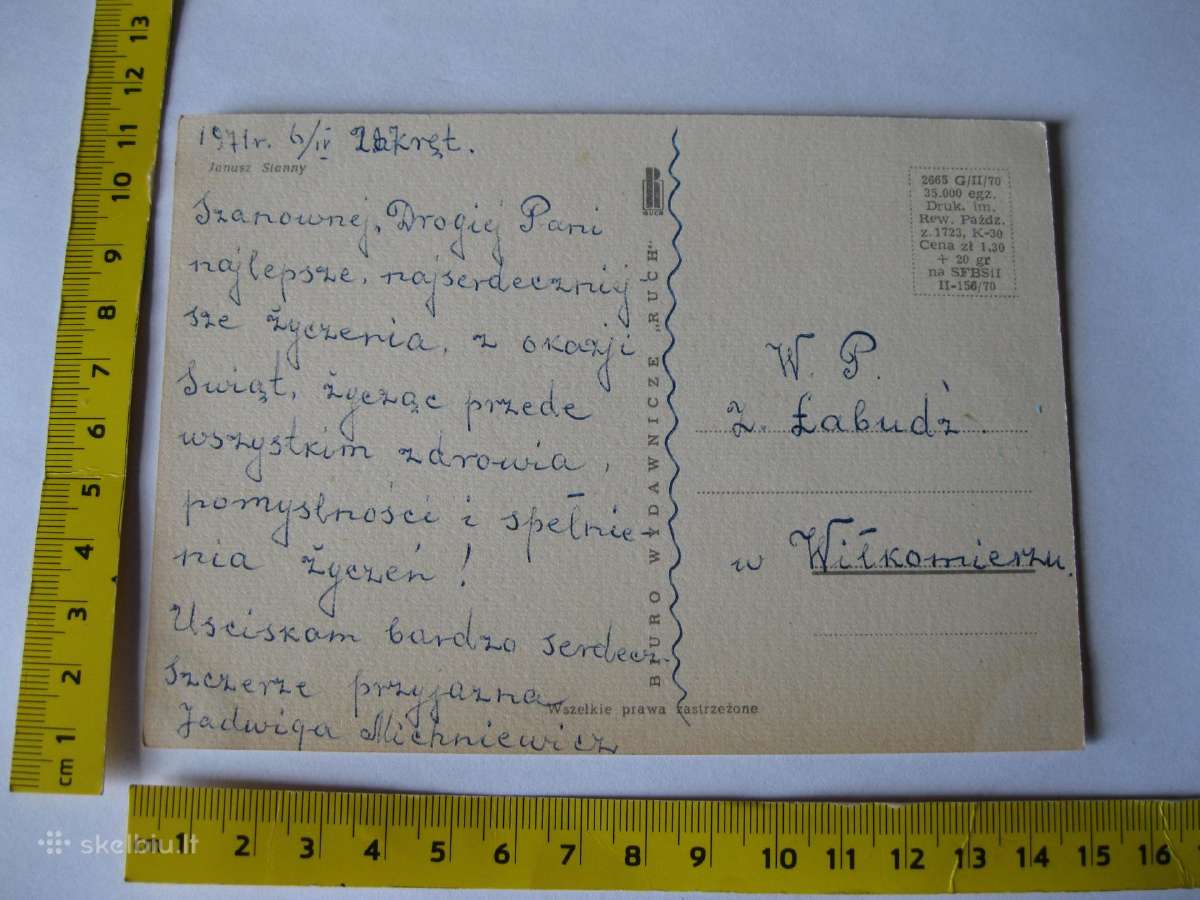 1971r. 6/IV Zakręt.
Janusz Stanny
Szanownej, Drogiej Pani
najlepsze, najserdeczniej
sze życzenia, z okazji
Świąt, życząc przede
wszystkim zdrowia,
pomyślności i spełnie-
nia życzeń!
Usciskam bardzo serdecz.
Szczerze przyjazna
Jadwiga Michniewicz
BIURO WYDAWNICZE „RUCH"
RUCH
Wszelkie prawa zastrzeżone
2665 G/II/70
35.000 egz.
Druk. im.
Rew. Paźdz.
z. 1723, K-30
Cena zł 1.30
+ 20 gr
na SFBSiI
II-156/70
W. P.
Z. Łabudź.
w Wiłkomierzu.
cm 1 2 3 4 5 6 7 8 9 10 11 12 13
cm 1 2 3 4 5 6 7 8 9 10 11 12 13 14 15 16
skelbiu.lt